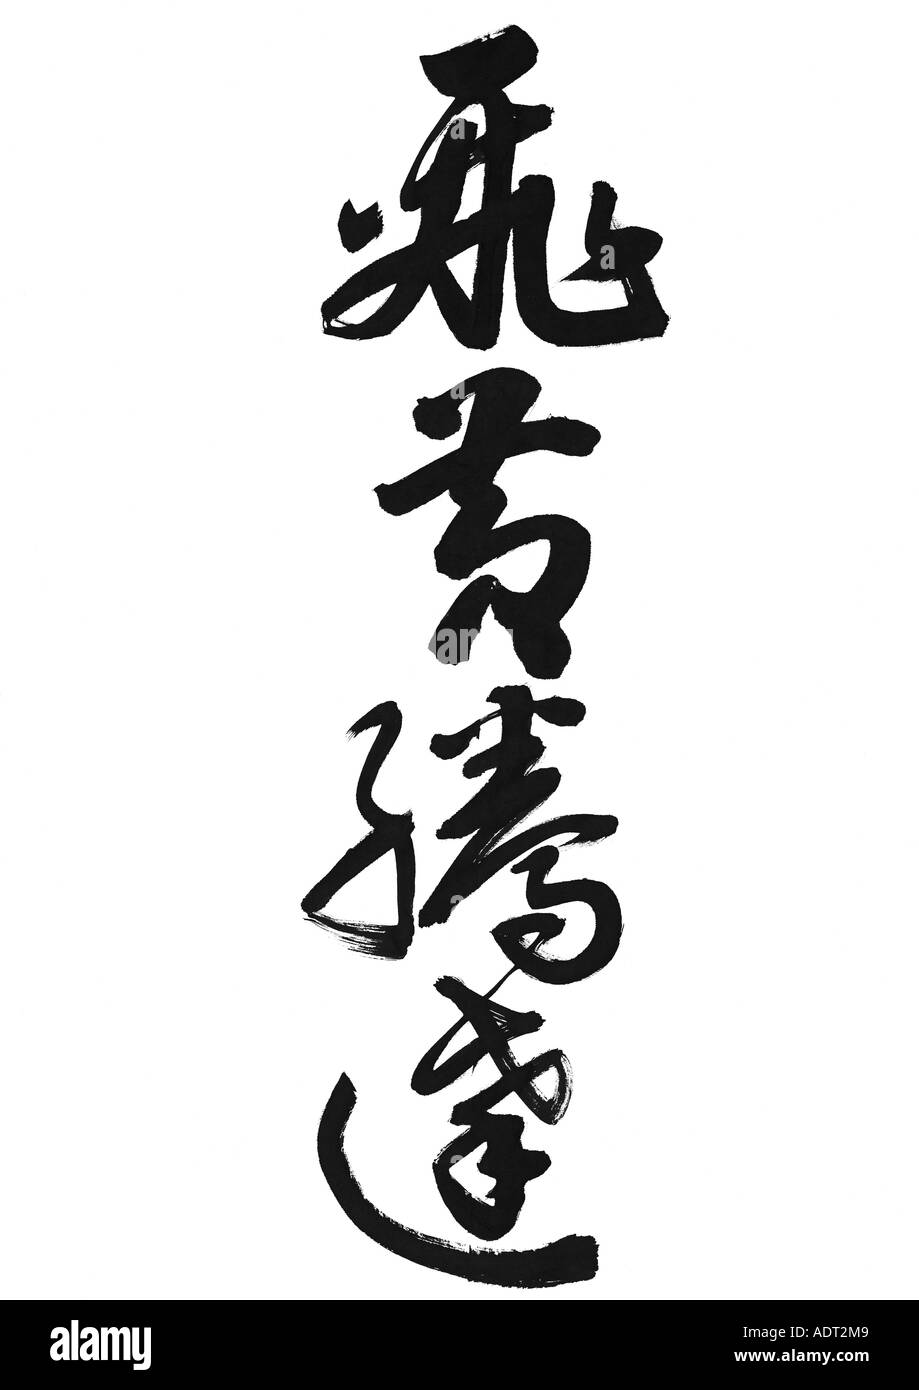 飛黄騰達
alamy
Image ID: ADT2M9
www.alamy.com